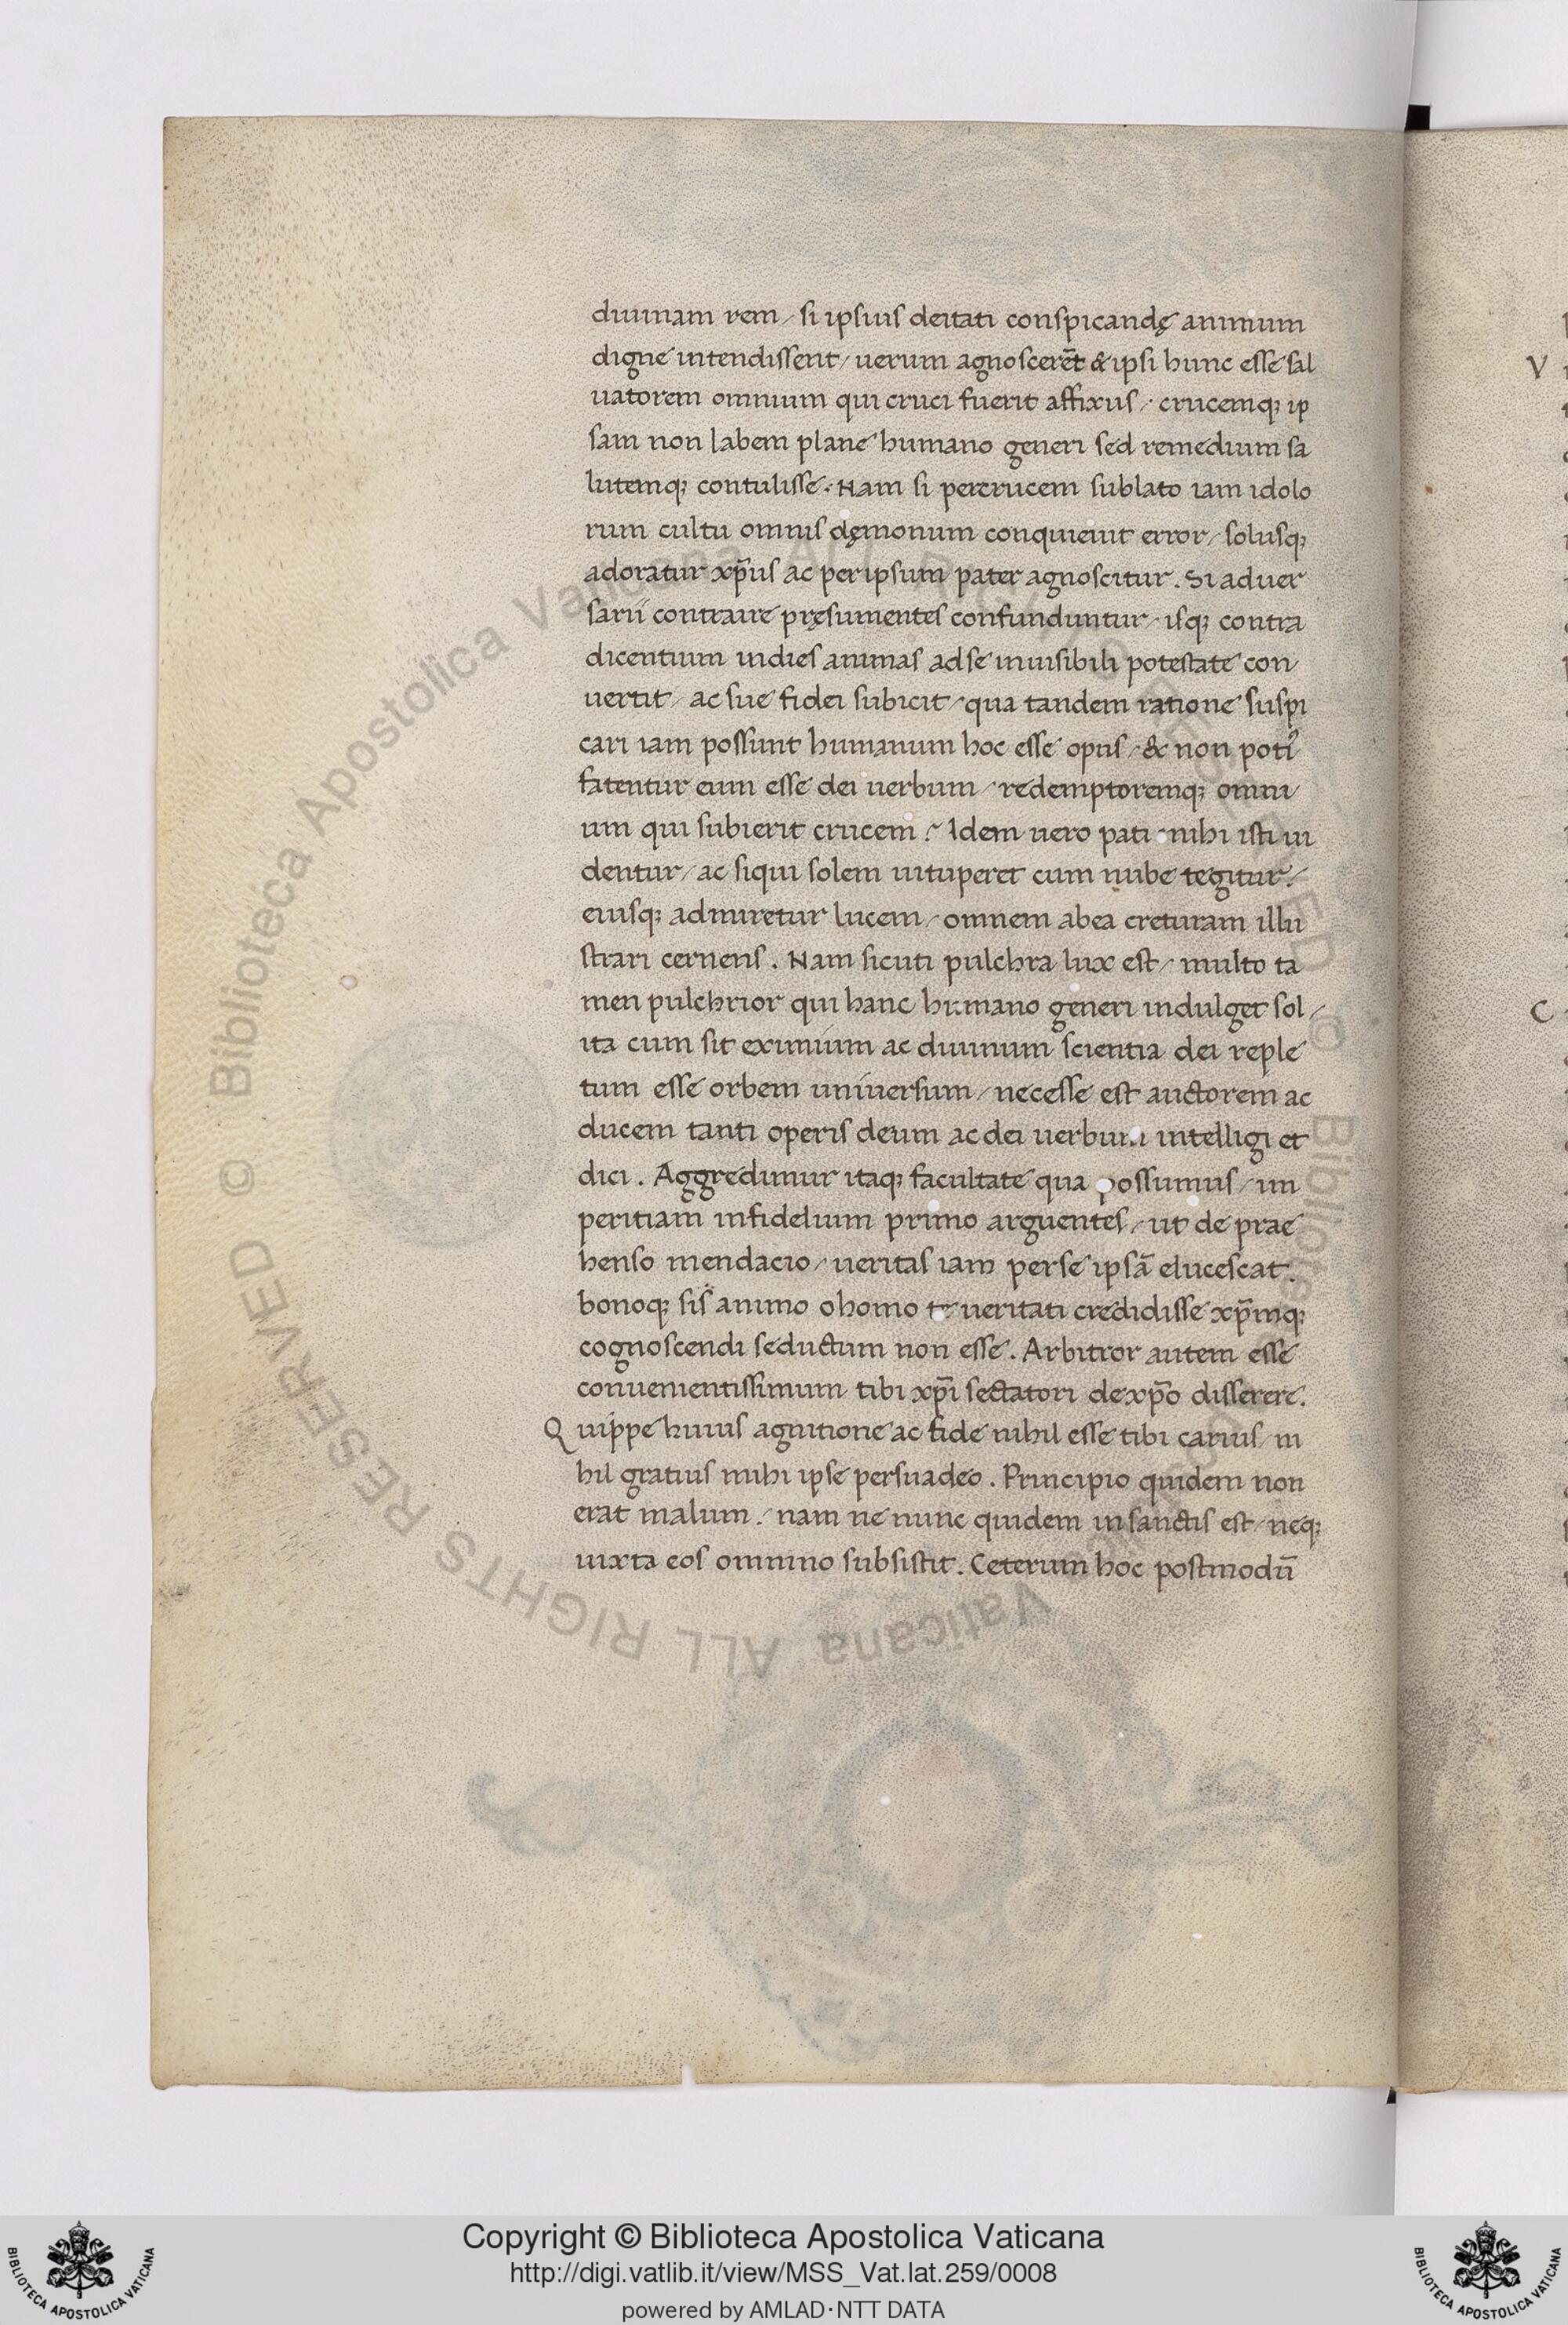 diuinam rem / si ipsius deitati conspicandę animum
digne intendissent / uerum agnoscerēt & ipsi hunc esse sal
uatorem omnium qui cruci fuerit affixus / crucemq; ip
sam non labem plane humano generi sed remedium sa
lutemq; contulisse. Nam si per crucem sublato iam idolo
rum cultu omnis dęmonum conquieuit error / solusq;
adoratur xp̄us ac per ipsum pater agnoscitur. Si aduer
sarii contraire pręsumentes confunduntur / isq; contra
dicentium indies animas ad se inuisibili potestate con
uertit / ac sue fidei subicit / qua tandem ratione suspi
cari iam possunt humanum hoc esse opus / & non poti᾽
fatentur eum esse dei uerbum / redemptoremq; omni
um qui subierit crucem? Idem uero pati mihi isti ui
dentur / ac siqui solem uituperet cum nube tegitur /
eiusq; admiretur lucem / omnem ab ea creturam illu
strari cernens. Nam sicuti pulchra lux est / multo ta
men pulchrior qui hanc humano generi indulget sol /
ita cum sit eximium ac diuinum scientia dei reple
tum esse orbem uniuersum / necesse est auctorem ac
ducem tanti operis deum ac dei uerbum intelligi et
dici. Aggredimur itaq; facultate qua possumus / im
peritiam infidelium primo arguentes / ut de prae
henso mendacio / ueritas iam per se ipsā elucescat.
bonoq; sis animo o homo te ueritati credidisse xp̄mq;
cognoscendi seductum non esse. Arbitror autem esse
conuenientissimum tibi xp̄i sectatori de xp̄o disserere.
Quippe huius agnitione ac fide nihil esse tibi carius / ni
hil gratius mihi ipse persuadeo. Principio quidem non
erat malum. / nam ne nunc quidem in sanctis est / neq;
iuxta eos omnino subsistit. Ceterum hoc postmodū
V
C
© Biblioteca Apostolica Vaticana ALL RIGHTS RESERVED © Biblioteca Apostolica Vaticana ALL RIGHTS RESERVED
Copyright © Biblioteca Apostolica Vaticana
http://digi.vatlib.it/view/MSS_Vat.lat.259/0008
powered by AMLAD·NTT DATA
BIBLIOTECA APOSTOLICA VATICANA
BIBLIOTECA APOSTOLICA VATICANA